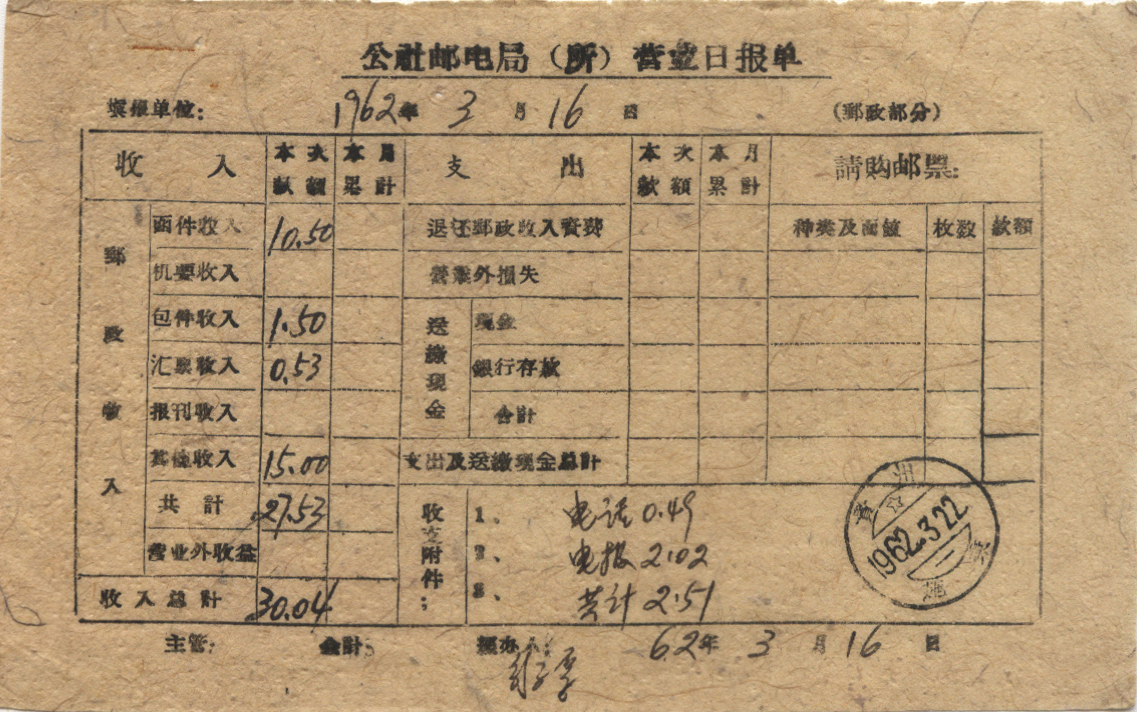 公社邮电局（所）营业日报单
填报单位： 1962年 3 月 16 日 （郵政部分）
收 入 本次款額 本月累計 支 出 本次款額 本月累計 請购邮票：
郵政收入
函件收入 10.50 退还郵政收入資費 种类及面值 枚数 款額
机要收入 營業外損失
包件收入 1.50 送繳现金 现金
汇票收入 0.53 銀行存款
报刊收入 合計
其他收入 15.00 支出及送繳现金总計
共 計 27.53 收支附件： 1、 电话 0.49
营业外收益 2、 电报 2.02
收入总計 30.04 3、 共计 2.51
1962.3.22
主管： 会計： 經办人： 62年 3 月 16 日